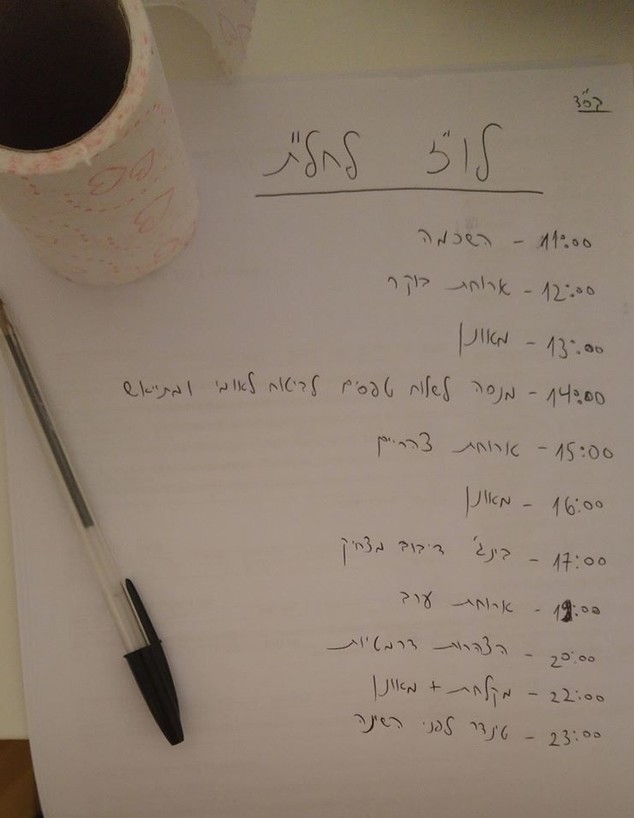 בס"ד
לו"ז לחל"ת
11:00 - השכמה
12:00 - ארוחת בוקר
13:00 - מאונן
14:00 - מנסה לשלוח טפסים לביטוח לאומי ומתייאש
15:00 - ארוחת צהריים
16:00 - מאונן
17:00 - בינג' דיבוב מצחיק
19:00 - ארוחת ערב
20:00 - הצהרות דרמטיות
22:00 - מקלחת + מאונן
23:00 - טינדר לפני השינה